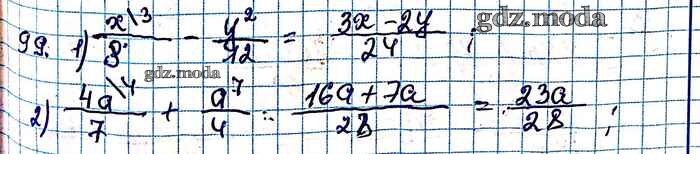 99. 1) x\3/8 - y\2/12 = 3x-2y/24 ; gdz.moda
gdz.moda
2) 4a\4/7 + a\7/4 = 16a+7a/28 = 23a/28 ;